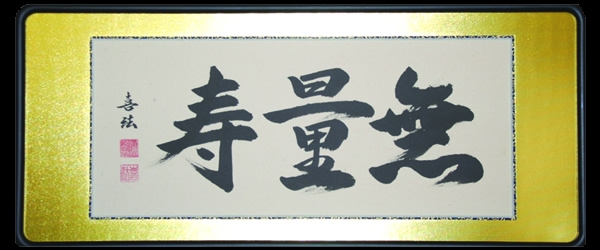 無量寿
喜絃